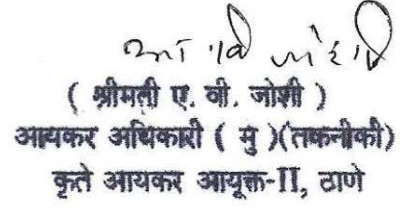 ( श्रीमती ए. वी. जोशी )
आयकर अधिकारी ( मु )(तकनीकी)
कृते आयकर आयूक्त-II, ठाणे